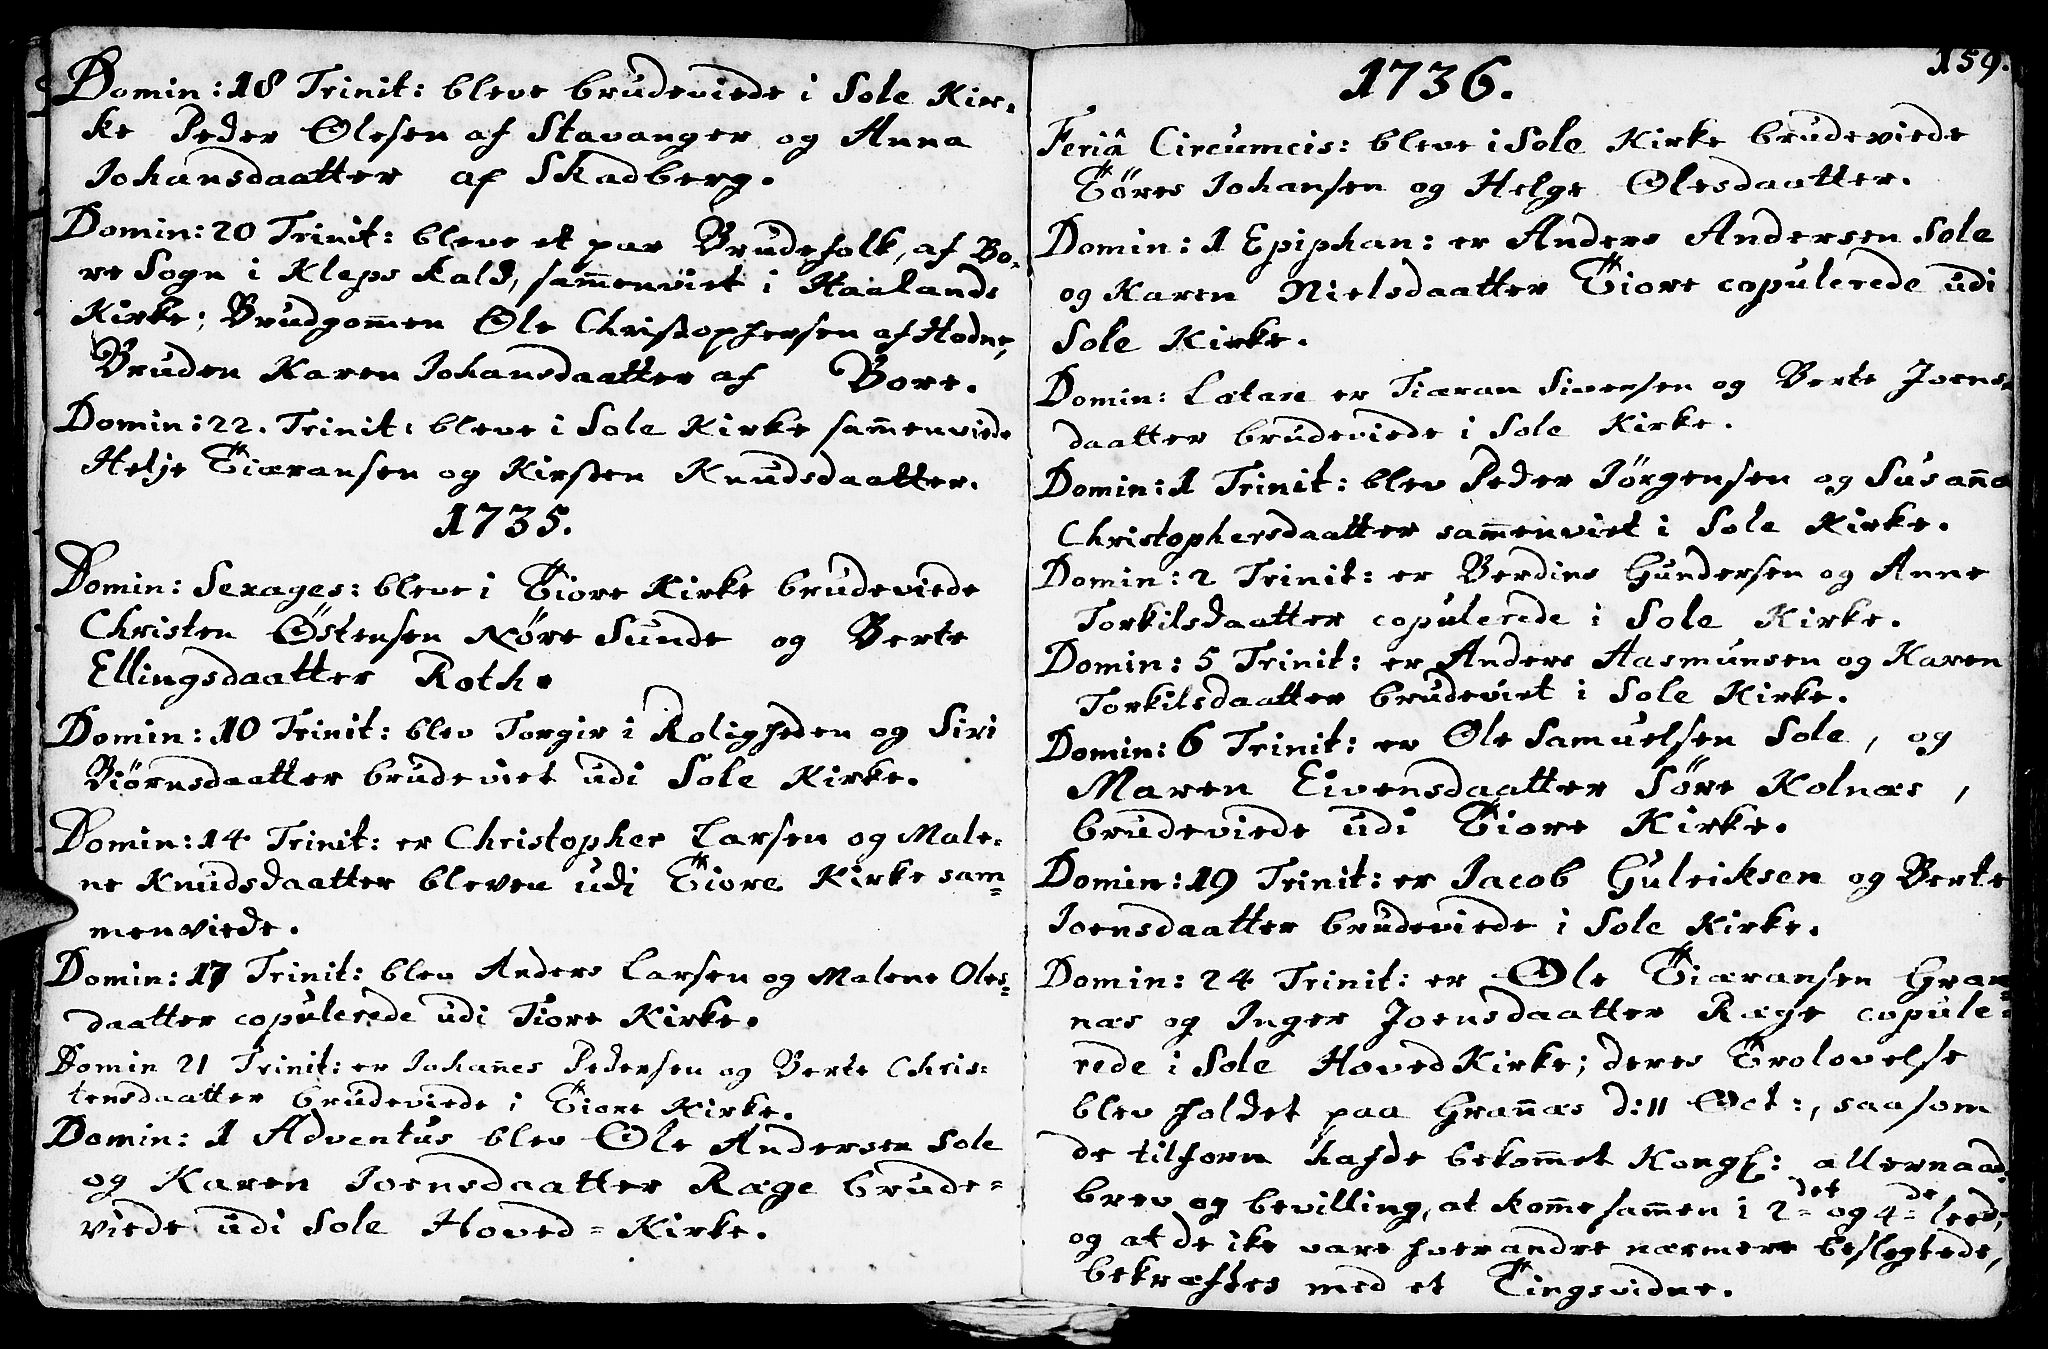 Domin: 18 Trinit: bleve brudeviede i Sole Kir-
ke Peder Olesen af Stavanger og Anna
Johansdaatter af Skadberg.
Domin: 20 Trinit: bleve et par Brudefolk, af Bo-
re Sogn i Kleps kald, sam̄enviet i Haalands
Kirke; Brudgom̄en Ole Christophersen af Hodne,
Bruden Karen Johansdaatter af Bore.
Domin: 22. Trinit: bleve i Sole Kirke sam̄enviede
Helje Tiæransen og Kirsten Knudsdaatter.
1735.
Domin: Sexages: bleve i Tiore Kirke brudeviede
Christen Østensen Nøre Sunde og Berte
Ellingsdaatter Roth.
Domin: 10 Trinit: blev Torgir i Roligheden og Siri
Biørnsdaatter brudeviet udi Sole Kirke.
Domin: 14 Trinit: er Christopher Larsen og Male-
ne Knudsdaatter bleven udi Tiore Kirke sam=
menviede.
Domin: 17 Trinit: blev Anders Larsen og Malene Oles=
daatter copulerede udi Tiore Kirke.
Domin 21 Trinit: er Johan̄es Pedersen og Berte Chris=
tensdaatter brudeviede i Tiore Kirke.
Domin: 1 Adventus blev Ole Andersen Sole
og Karen Joensdaatter Ræge brude=
viede udi Sole Hoved=Kirke.
159.
1736.
Feriâ Circumcis: bleve i Sole Kirke brudeviede
Tøres Johansen og Helge Olesdaatter.
Domin: 1 Epiphan: er Anders Andersen Sole
og Karen Nielsdaatter Tiore copulerede udi
Sole Kirke.
Domin: Lætare er Tiæran Sivensen og Berte Joens=
daatter brudeviede i Sole Kirke.
Domin: 1 Trinit: blev Peder Jørgensen og Susan̄a
Christophersdaatter sam̄enviet i Sole Kirke.
Domin: 2 Trinit: er Berdines Gundersen og Anne
Torkilsdaatter copulerede i Sole Kirke.
Domin: 5 Trinit: er Anders Aasmunsen og Karen
Torkilsdaatter brudeviet i Sole Kirke.
Domin: 6 Trinit: er Ole Samuelsen Sole, og
Maren Eivensdaatter Søre Kolnæs,
brudeviede udi Tiore Kirke.
Domin: 19 Trinit: er Jacob Guleiksen og Berte
Joensdaatter brudeviede i Sole Kirke.
Domin: 24 Trinit: er Ole Tiæransen Gran=
næs og Inger Joensdaatter Ræge copule=
rede i Sole Hoved Kirke; deres Trolovelse
blev holdet paa Gran̄æs d: 11 Oct:, saasom
de tilforn hafde bekom̄et Kongl: allernaad:
brev og bevilling, at kom̄e sam̄en i 2det og 4de leed;
og at de ike vare hverandre nærmere beslegtede,
bekræftes med et Tingsvidne.